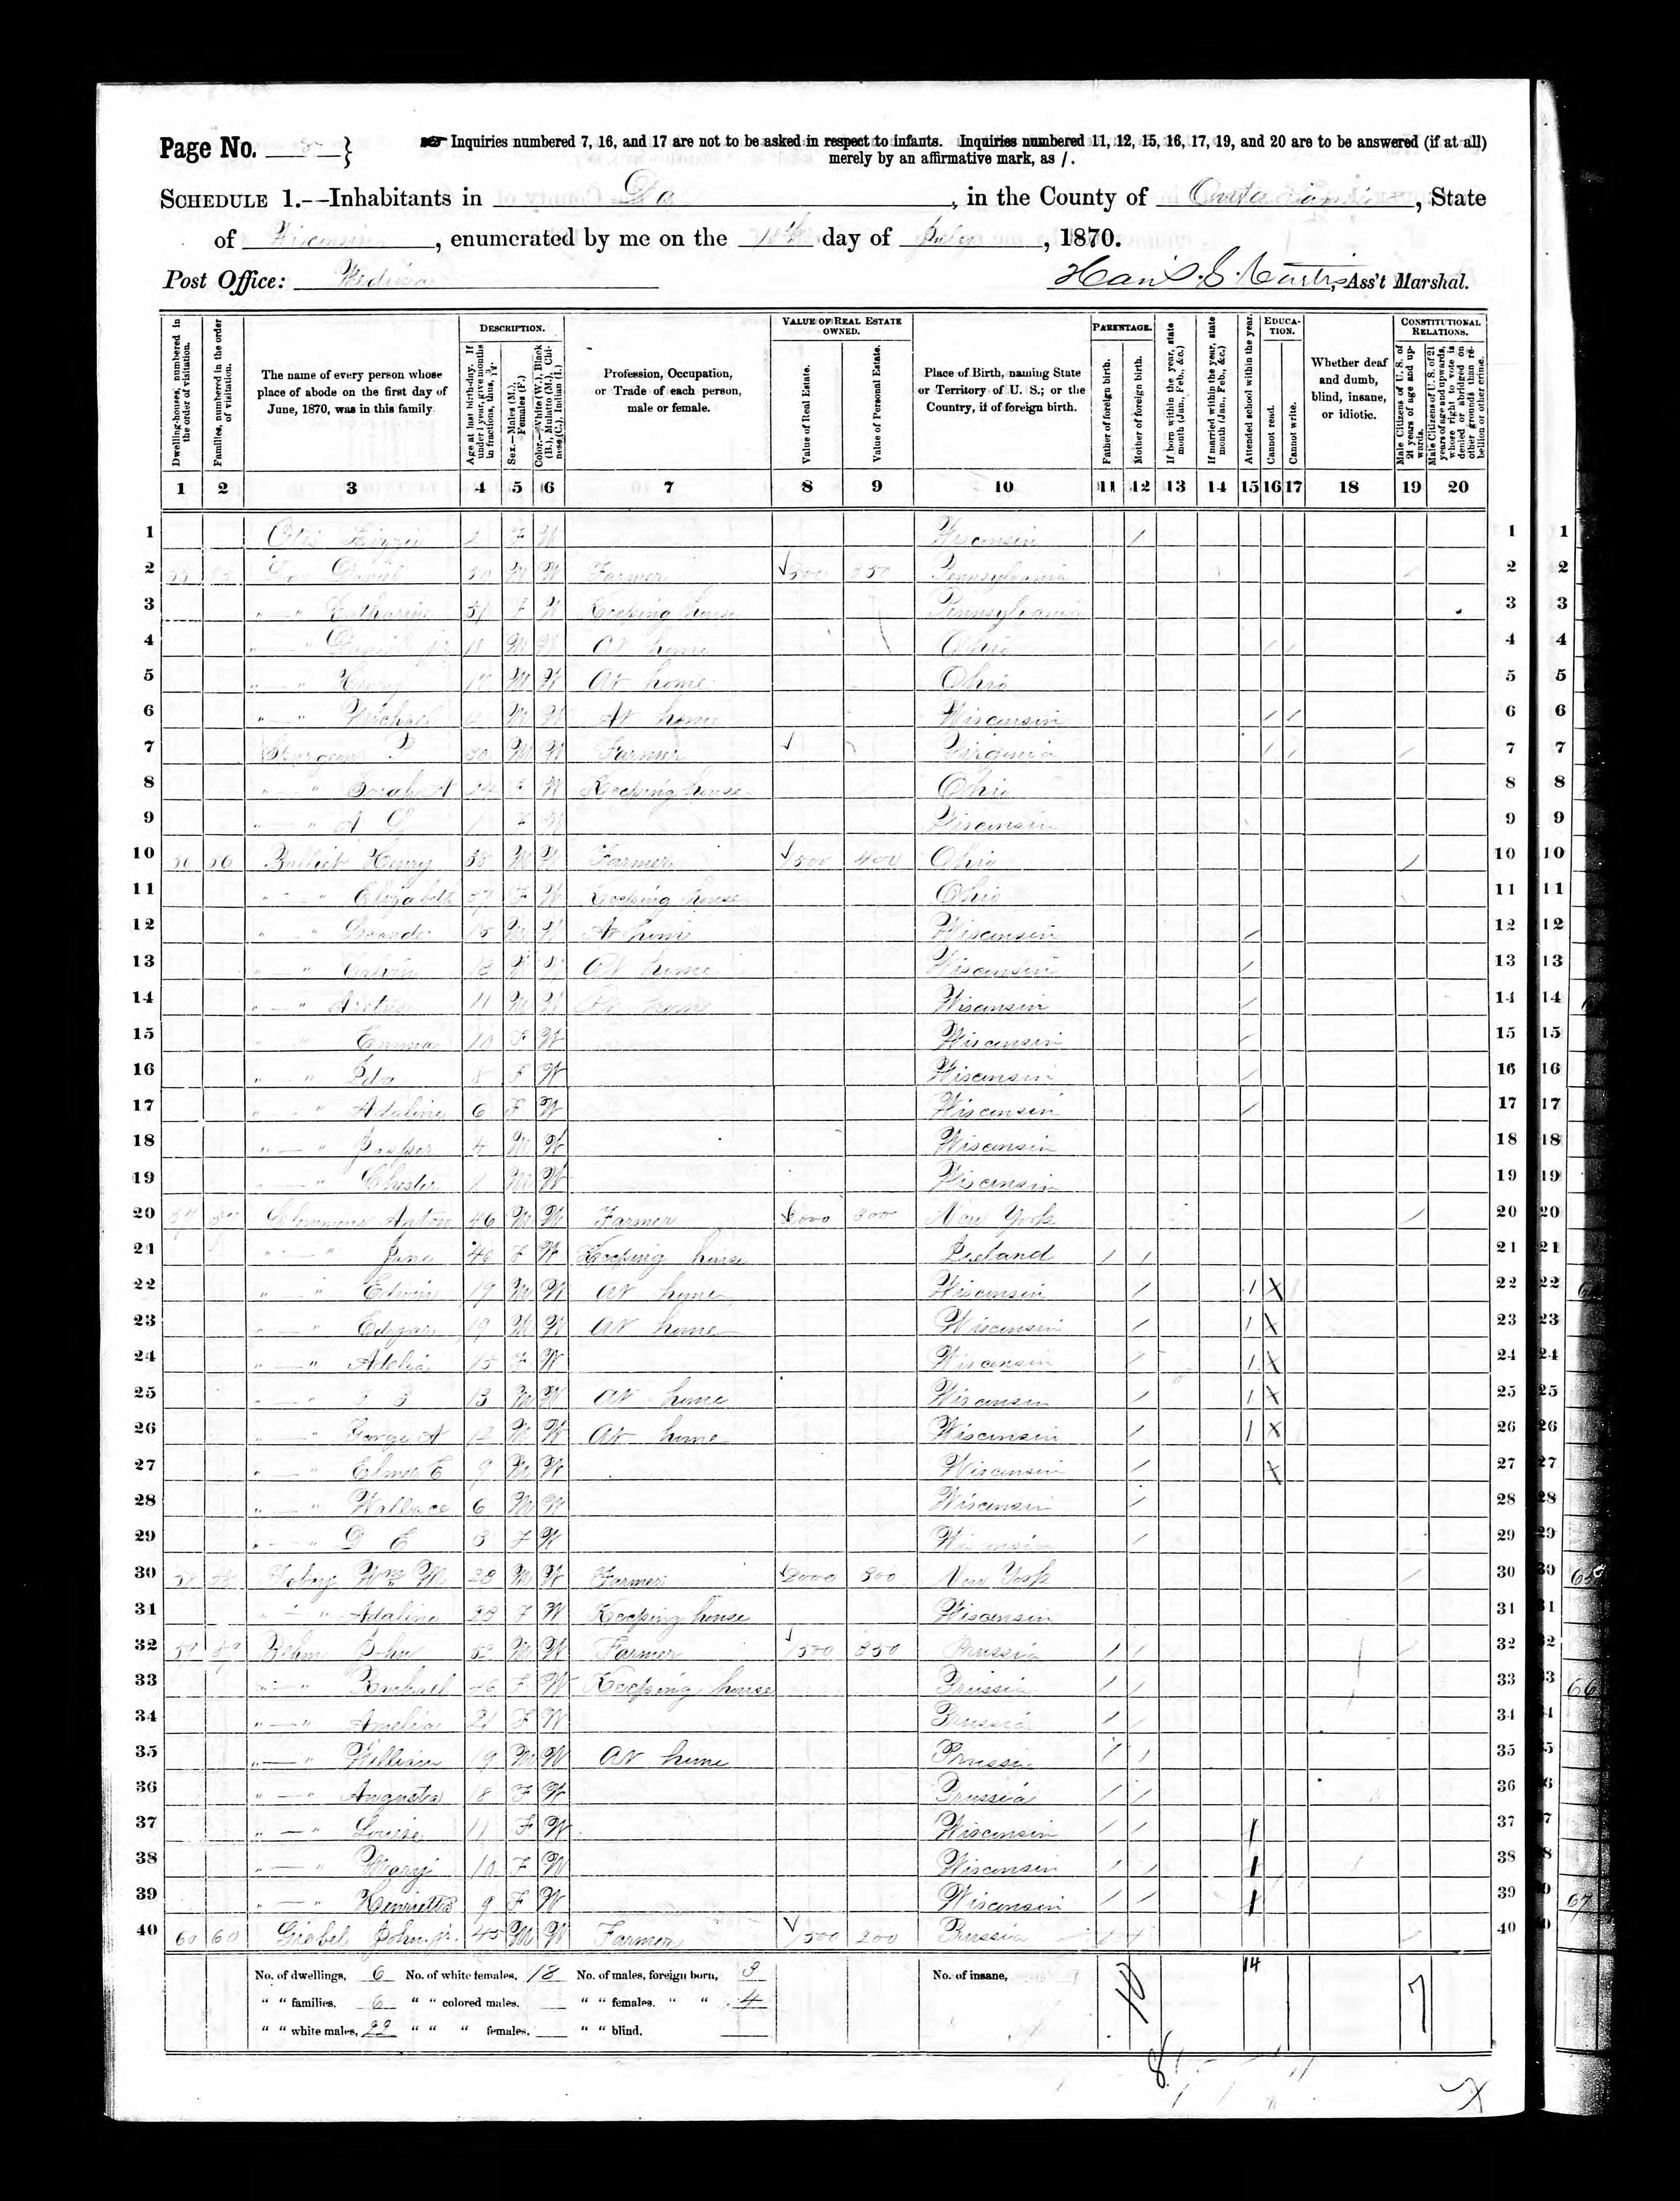 Page No. 8 }
Inquiries numbered 7, 16, and 17 are not to be asked in respect to infants. Inquiries numbered 11, 12, 15, 16, 17, 19, and 20 are to be answered (if at all)
merely by an affirmative mark, as /.
SCHEDULE 1.--Inhabitants in Da, in the County of, State
of Wisconsin, enumerated by me on the day of July, 1870.
Post Office: Medina
Curtis, Ass't Marshal.
Dwelling-houses, numbered in the order of visitation.
Families, numbered in the order of visitation.
The name of every person whose place of abode on the first day of June, 1870, was in this family.
DESCRIPTION.
Age at last birth-day. If under 1 year, give months in fractions, thus, 3/12.
Sex.—Males (M.), Females (F.)
Color.—White (W.), Black (B.), Mulatto (M.), Chinese (C.), Indian (I.)
Profession, Occupation, or Trade of each person, male or female.
VALUE OF REAL ESTATE OWNED.
Value of Real Estate.
Value of Personal Estate.
Place of Birth, naming State or Territory of U. S.; or the Country, if of foreign birth.
PARENTAGE.
Father of foreign birth.
Mother of foreign birth.
If born within the year, state month (Jan., Feb., &c.)
If married within the year, state month (Jan., Feb., &c.)
Attended school within the year.
EDUCATION.
Cannot read.
Cannot write.
Whether deaf and dumb, blind, insane, or idiotic.
CONSTITUTIONAL RELATIONS.
Male Citizens of U. S. of 21 years of age and upwards.
Male Citizens of U. S. of 21 years of age and upwards, whose right to vote is denied or abridged on other grounds than rebellion or other crime.
1 2 3 4 5 6 7 8 9 10 11 12 13 14 15 16 17 18 19 20
1 Otis Lizzie 2 F W Wisconsin / 1
2 Daniel 50 M W Farmer 350 Pennsylvania / 2
3 " — " Catharine 51 F W Keeping house Pennsylvania 3
4 " — " Daniel jr 18 M W At home Ohio / / 4
5 " " Henry M W At home Ohio 5
6 " — " Michael M W At home Wisconsin / / 6
7 M W Farmer Virginia / / / 7
8 " — " Sarah A 24 F W Keeping house Ohio 8
9 " — " A Wisconsin 9
10 56 56 Balliet Henry 38 M W Farmer 1500 400 Ohio / 10
11 " — " Elizabeth 37 F W Keeping house Ohio 11
12 " " 15 M W At home Wisconsin / 12
13 " — " Calvin 13 M W At home Wisconsin / 13
14 " — " 11 M W At home Wisconsin / 14
15 " " Emma 10 F W Wisconsin / 15
16 " " Ida 8 F W Wisconsin / 16
17 " — " Adaline 6 F W Wisconsin / 17
18 " — " Jasper 4 M W Wisconsin 18
19 " — " Chester 1 M W Wisconsin 19
20 57 57 Clemmons Anton 46 M W Farmer 800 New York / 20
21 " — " Jane 46 F W Keeping house Ireland / / 21
22 " " Edwin 19 M W At home Wisconsin / 1 X 22
23 " — " Edgar 19 M W At home Wisconsin / 1 X 23
24 " — " Adelia 15 F W Wisconsin / 1 X 24
25 " — " 13 M W At home Wisconsin / 1 X 25
26 " — " George A 12 M W At home Wisconsin / 1 X 26
27 " — " Elmer E 9 M W Wisconsin / X 27
28 " — " Wallace 6 M W Wisconsin / 28
29 " — " D E 3 F W Wisconsin / 29
30 58 58 Tobey Wm M 28 M W Farmer 2000 800 New York / 30
31 " — " Adaline 28 F W Keeping house Wisconsin 31
32 59 59 Bohm John 52 M W Farmer 1500 350 Prussia / / / 32
33 " — " Rachael 46 F W Keeping house Prussia / / 33
34 " — " Amelia 21 F W Prussia / / 34
35 " — " William 19 M W At home Prussia / / 35
36 " — " Augusta 18 F W Prussia / / 36
37 " — " Louise 11 F W Wisconsin / / 1 37
38 " — " Mary 10 F W Wisconsin / / 1 38
39 " — " Henrietta 9 F W Wisconsin / / 1 39
40 60 60 Giebel John jr. 45 M W Farmer 1500 200 Prussia / / / 40
No. of dwellings, 6 No. of white females, 18 No. of males, foreign born, 3 No. of insane, 10 14 7
" " families, 6 " " colored males, " " females, " " 4
" " white males, 22 " " " females, " " blind,
8